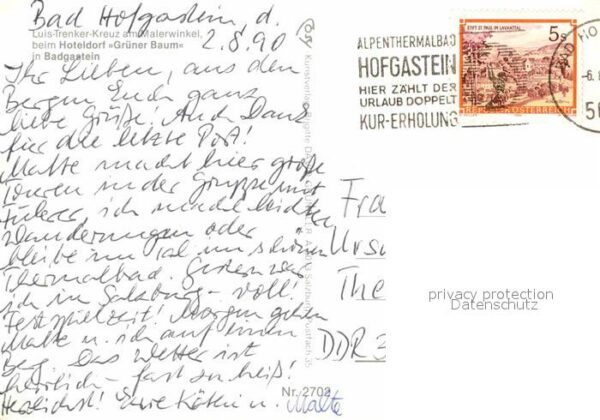 Bad Hofgastein, d.
2.8.90
Luis-Trenker-Kreuz am Malerwinkel,
beim Hoteldorf »Grüner Baum«
in Badgastein
Ihr Lieben, aus den
Bergen Euch ganz
liebe Grüße! Auch Dank
für die letzte Post!
Malte macht hier große
Touren in der Gruppe mit
Führer, ich mache leichten
Wanderungen oder
bleibe im Tal im schönen
Thermalbad. Gestern war
ich in Salzburg - voll!
Festspielzeit! Morgen gehen
Malte u. ich auf einen
Berg. Das Wetter ist
herrlich - fast zu heiß!
Herzlichst! Eure Käthi u. Malte
Nr. 2702
Kunstverlag Brigitte
ALPENTHERMALBAD
HOFGASTEIN
HIER ZÄHLT DER
URLAUB DOPPELT
KUR-ERHOLUNG
STIFT ST. PAUL IM LAVANTTAL
5S
REPUBLIK ÖSTERREICH
BAD HO
-6.
56
Fra
Ursu
The
DDR 3
privacy protection
Datenschutz